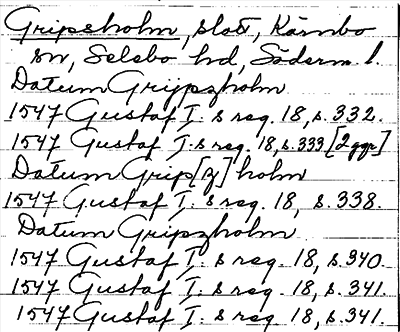 Gripsholm, slott, Kärnbo
sn, Selebo hd, Söderm. l.
Datum Grijpzholm
1547 Gustaf I:s reg. 18, s. 332.
1547 Gustaf I:s reg. 18, s. 333 [2 ggr]
Datum Grip[z]holm
1547 Gustaf I:s reg. 18, s. 338.
Datum Gripzholm
1547 Gustaf I:s reg. 18, s. 340.
1547 Gustaf I:s reg. 18, s. 341.
1547 Gustaf I:s reg. 18, s. 341.